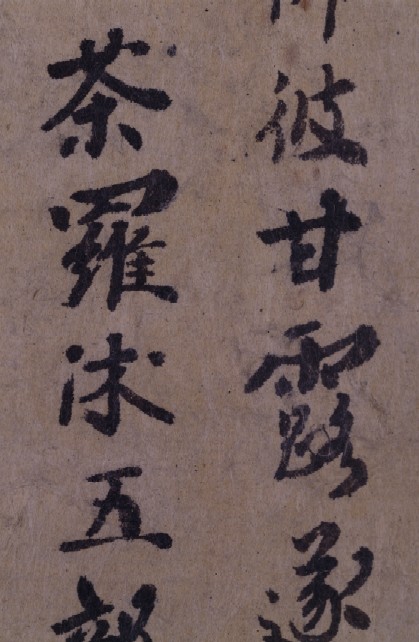 彼甘露遂
荼羅沐五